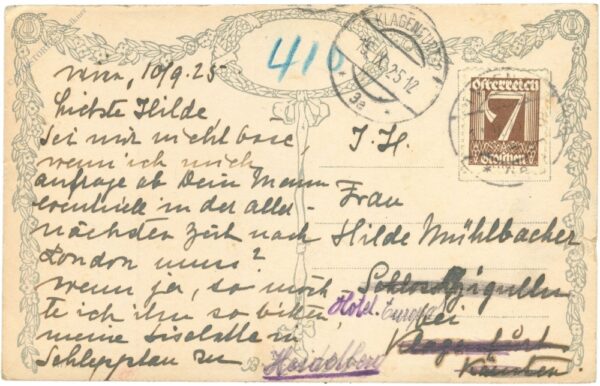 410
KLAGENFURT
15.IX.25 12
* 3a *
Österreich
7
Groschen
Wien, 10/9.25.
Liebste Hilde,
Sei mir nicht böse,
wenn ich mich
anfrage ob Dein Mann
eventuell in der aller-
nächsten Zeit nach
London muss?
Wenn ja, so möch-
te ich ihn so bitten,
meine Liselotte in
Schlepptau zu
I. H.
Frau
Hilde Mühlbacher
Schloss Zigulln
Hotel Europa
bei
Klagenfurt
Kärnten
Heidelberg